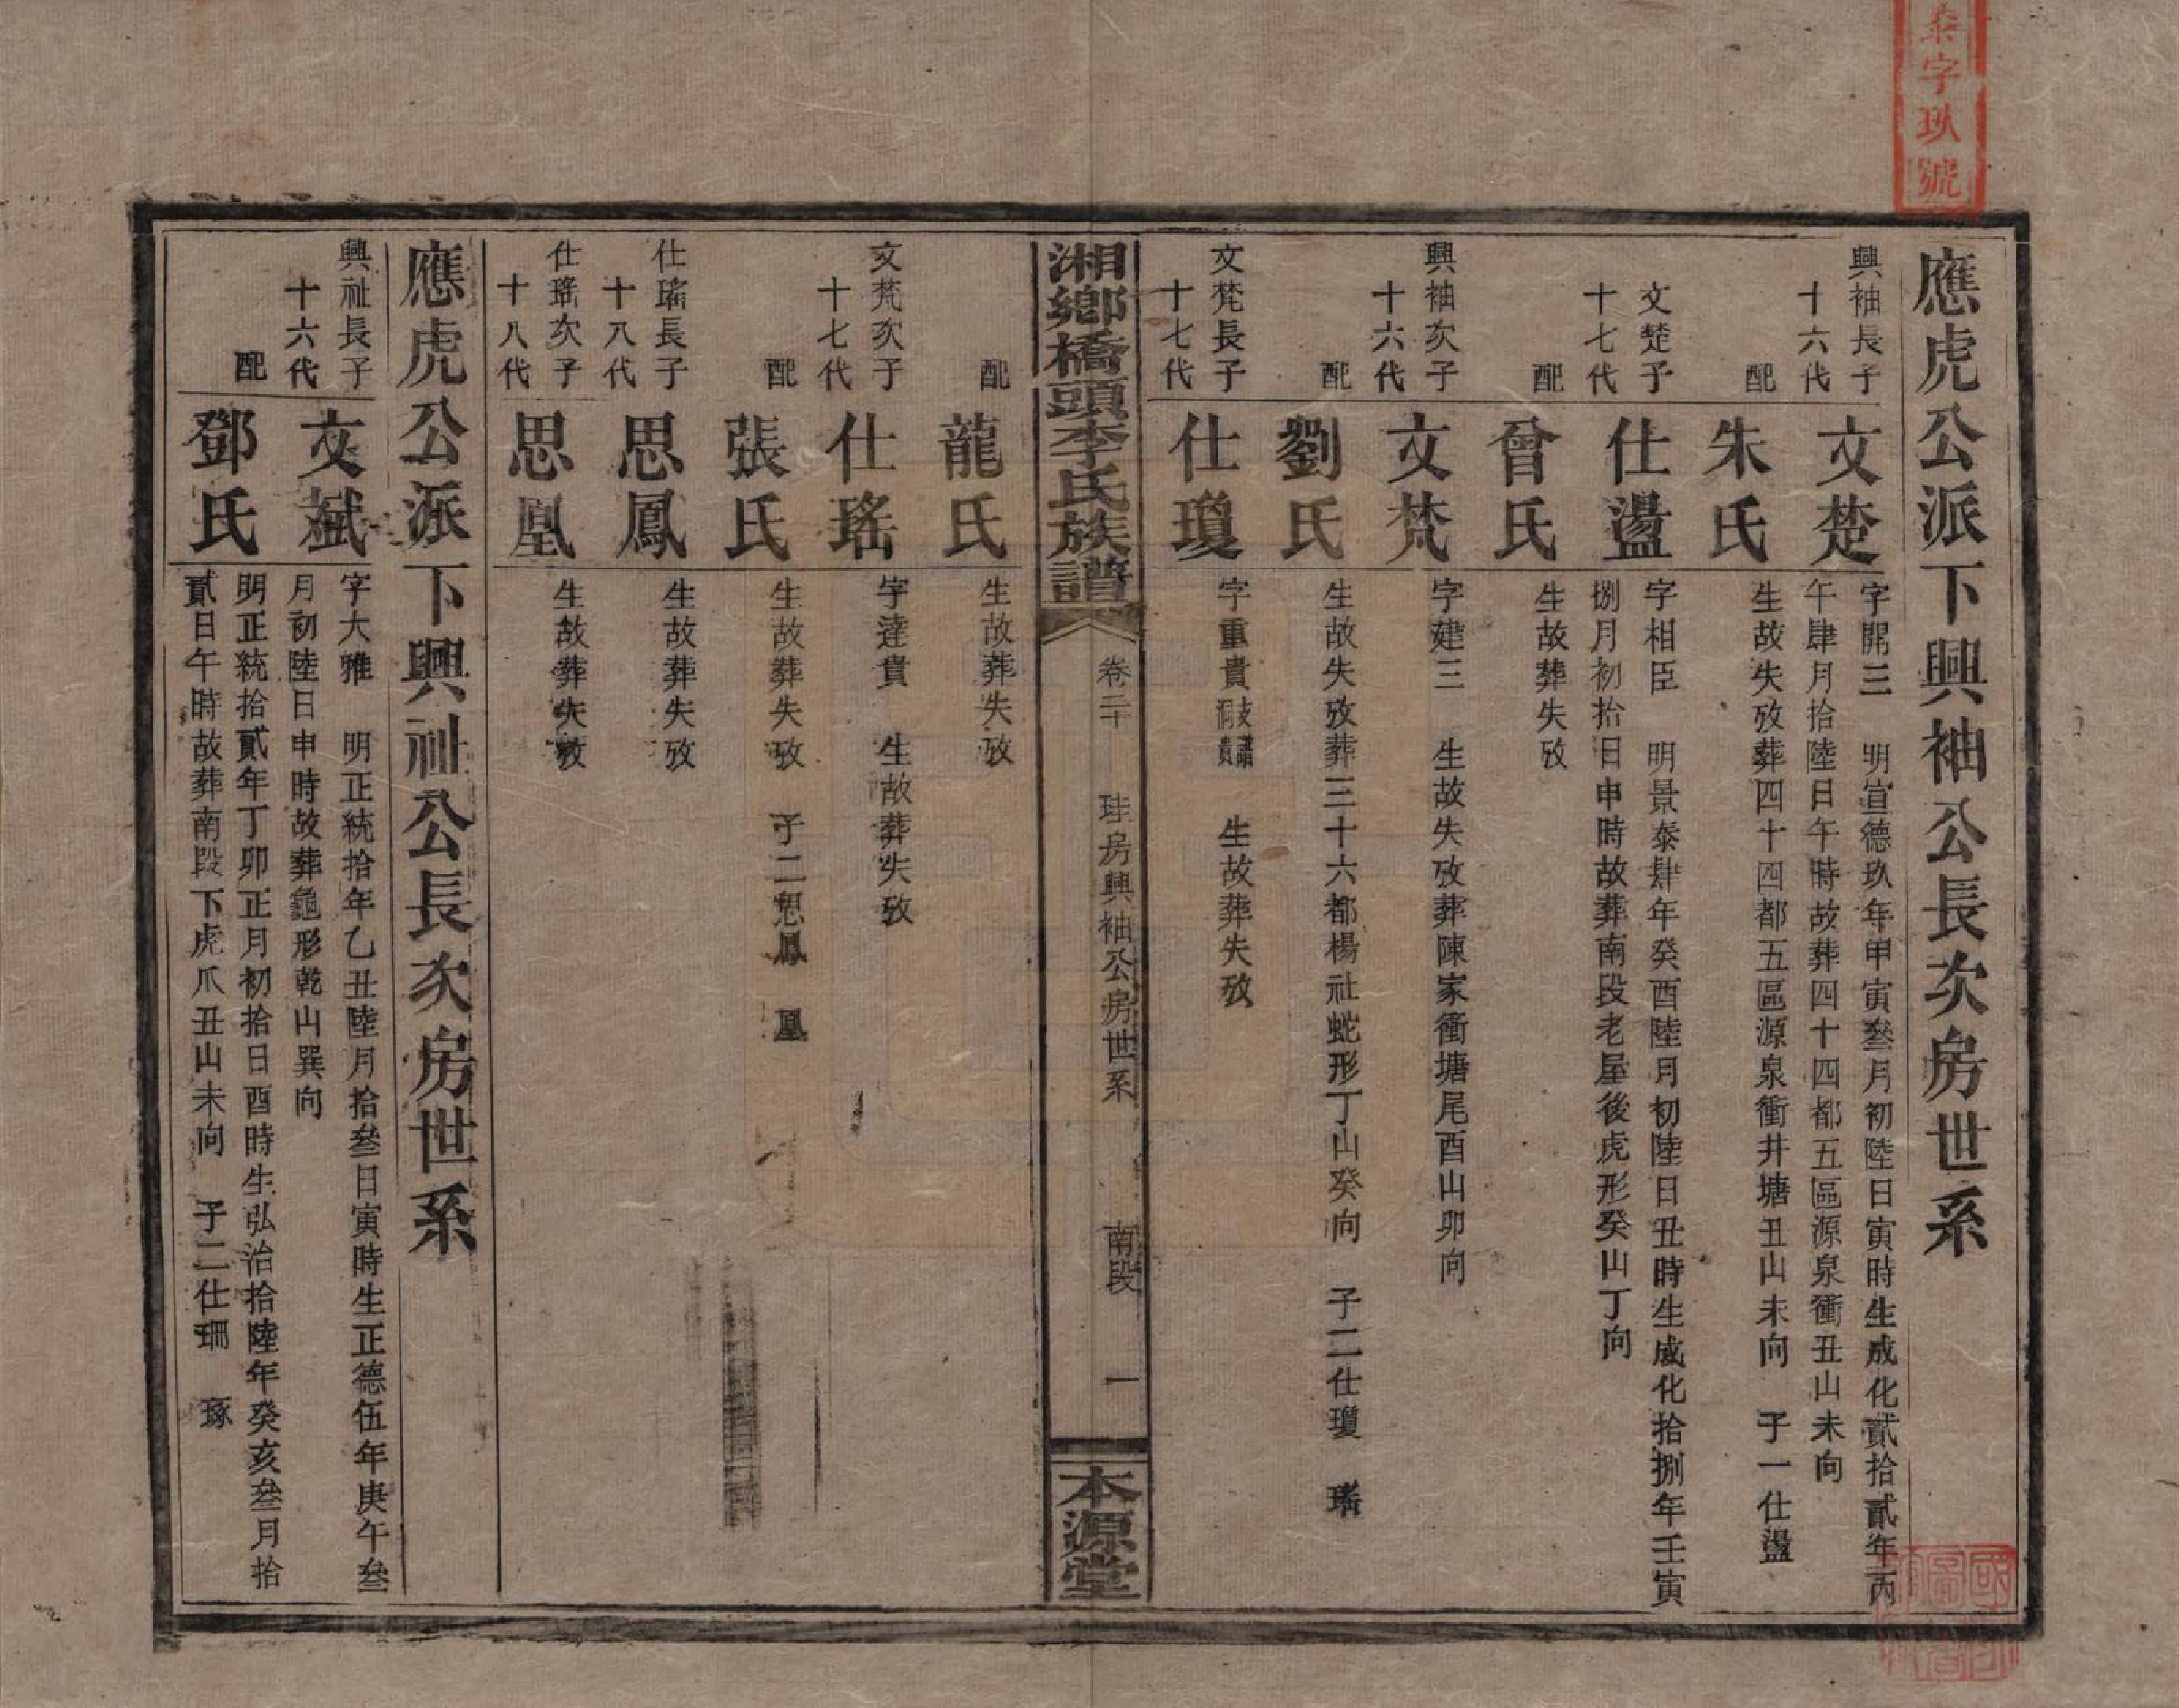 字玖號
應虎公派下興袖公長次房世系
興袖長子
十六代
文楚
字開三 明宣德玖年甲寅叄月初陸日寅時生成化貳拾貳年丙
午肆月拾陸日午時故葬四十四都五區源泉衝丑山未向
配
朱氏
生故失攷葬四十四都五區源泉衝井塘丑山未向 子一仕盪
文楚子
十七代
仕盪
字相臣 明景泰肆年癸酉陸月初陸日丑時生成化拾捌年壬寅
捌月初拾日申時故葬南段老屋後虎形癸山丁向
配
曾氏
生故葬失攷
興袖次子
十六代
文梵
字建三 生故失攷葬陳家衝塘尾酉山卯向
配
劉氏
生故失攷葬三十六都楊社蛇形丁山癸向 子二仕瓊 瑤
文梵長子
十七代
仕瓊
字重貴 生故葬失攷
湘鄉橋頭李氏族譜
卷二十
珪房興袖公房世系
南段
一
本源堂
配
龍氏
生故葬失攷
文梵次子
十七代
仕瑤
字達貴 生故葬失攷
配
張氏
生故葬失攷 子二思鳳 凰
仕瑤長子
十八代
思鳳
生故葬失攷
仕瑤次子
十八代
思凰
生故葬失攷
應虎公派下興祉公長次房世系
興祉長子
十六代
文斌
字大雅 明正統拾年乙丑陸月拾叄日寅時生正德伍年庚午叄
月初陸日申時故葬龜形乾山巽向
配
鄧氏
明正統拾貳年丁卯正月初拾日酉時生弘治拾陸年癸亥叄月拾
貳日午時故葬南段下虎爪丑山未向 子二仕珊 琢